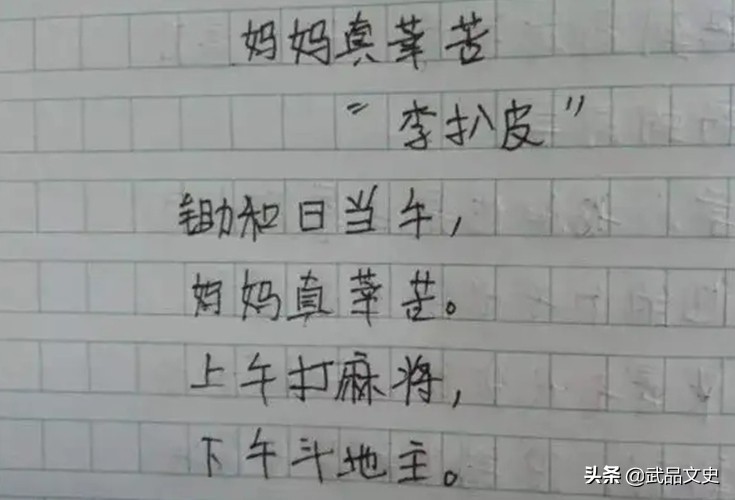 妈妈真莘苦
“李扒皮”
锄和日当午,
妈妈真莘苦。
上午打麻将,
下午斗地主。
头条 @武品文史